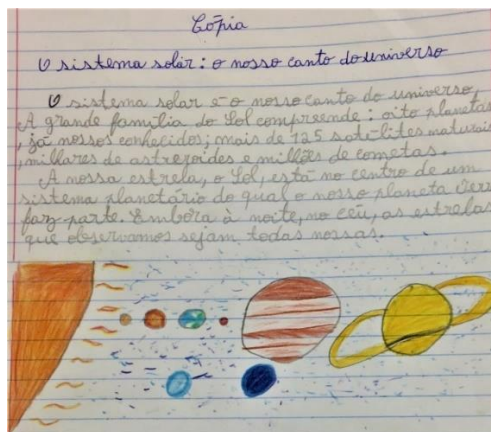 Cópia
O sistema solar: o nosso canto do universo
O sistema solar é o nosso canto do universo,
A grande família do Sol compreende: oito planetas
, já nossos conhecidos; mais de 125 satélites naturais
, milhares de astrezoides e milhões de cometas.
A nossa estrela, o Sol, está no centro de um
sistema planetário do qual o nosso planeta Terr
faz parte. Embora à noite, no céu, as estrelas
que observamos sejam todas nossas.